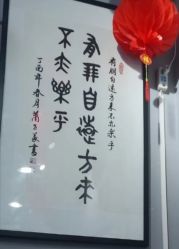 有朋自遠方来不亦樂乎
有朋自遠方来
不亦樂乎
丁酉年春月書